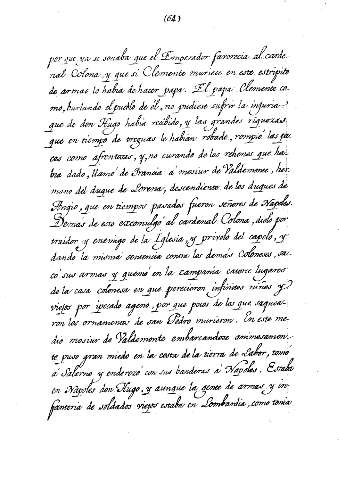 (64)
por que ya se sonaba que el Emperador favorecia al carde-
nal Colona y que si Clemente muriese en este estrepito
de armas lo habia de hacer papa. El papa Clemente co-
mo, burlando el pueblo de él, no pudiese sufrir la injuria
que de don Hugo habia recibido, y las grandes riquezas,
que en tiempo de treguas le habian robado, rompió las pa-
ces como afrentozas, y, no curando de los rehenes que ha-
bia dado, llamó de Francia a mosiur de Valdemonte, her-
mano del duque de Lorena, descendiente de los duques de
Angio, que en tiempos pasados fueron señores de Napoles.
Demas de esto excomulgó al cardenal Colona, diolo por
traidor y enemigo de la Iglesia, y privolo del capelo, y
dando la misma sentencia contra los demas Coloneses, sa-
có sus armas y quemó en la campania catorce lugares
de la casa colonesa en que perecieron infinitos niños y
viejos por pecado ageno, por que pocos de los que saquea-
ron los ornamentos de san Pedro murieron. En este me-
dio mosiur de Valdemonte embarcandose animosamen-
te puso gran miedo en la costa de la tierra de Labor, tomó
á Salerno y enderezó con sus banderas á Napoles. Estaba
en Napoles don Hugo, y aunque la gente de armas y in-
fanteria de soldados viejos estaba en Lombardia, como tenia